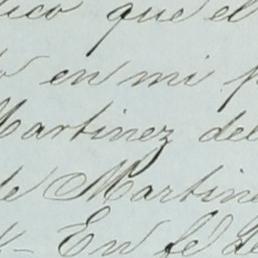 tico que el
en mi p
Martinez del
de Martine
En fe de